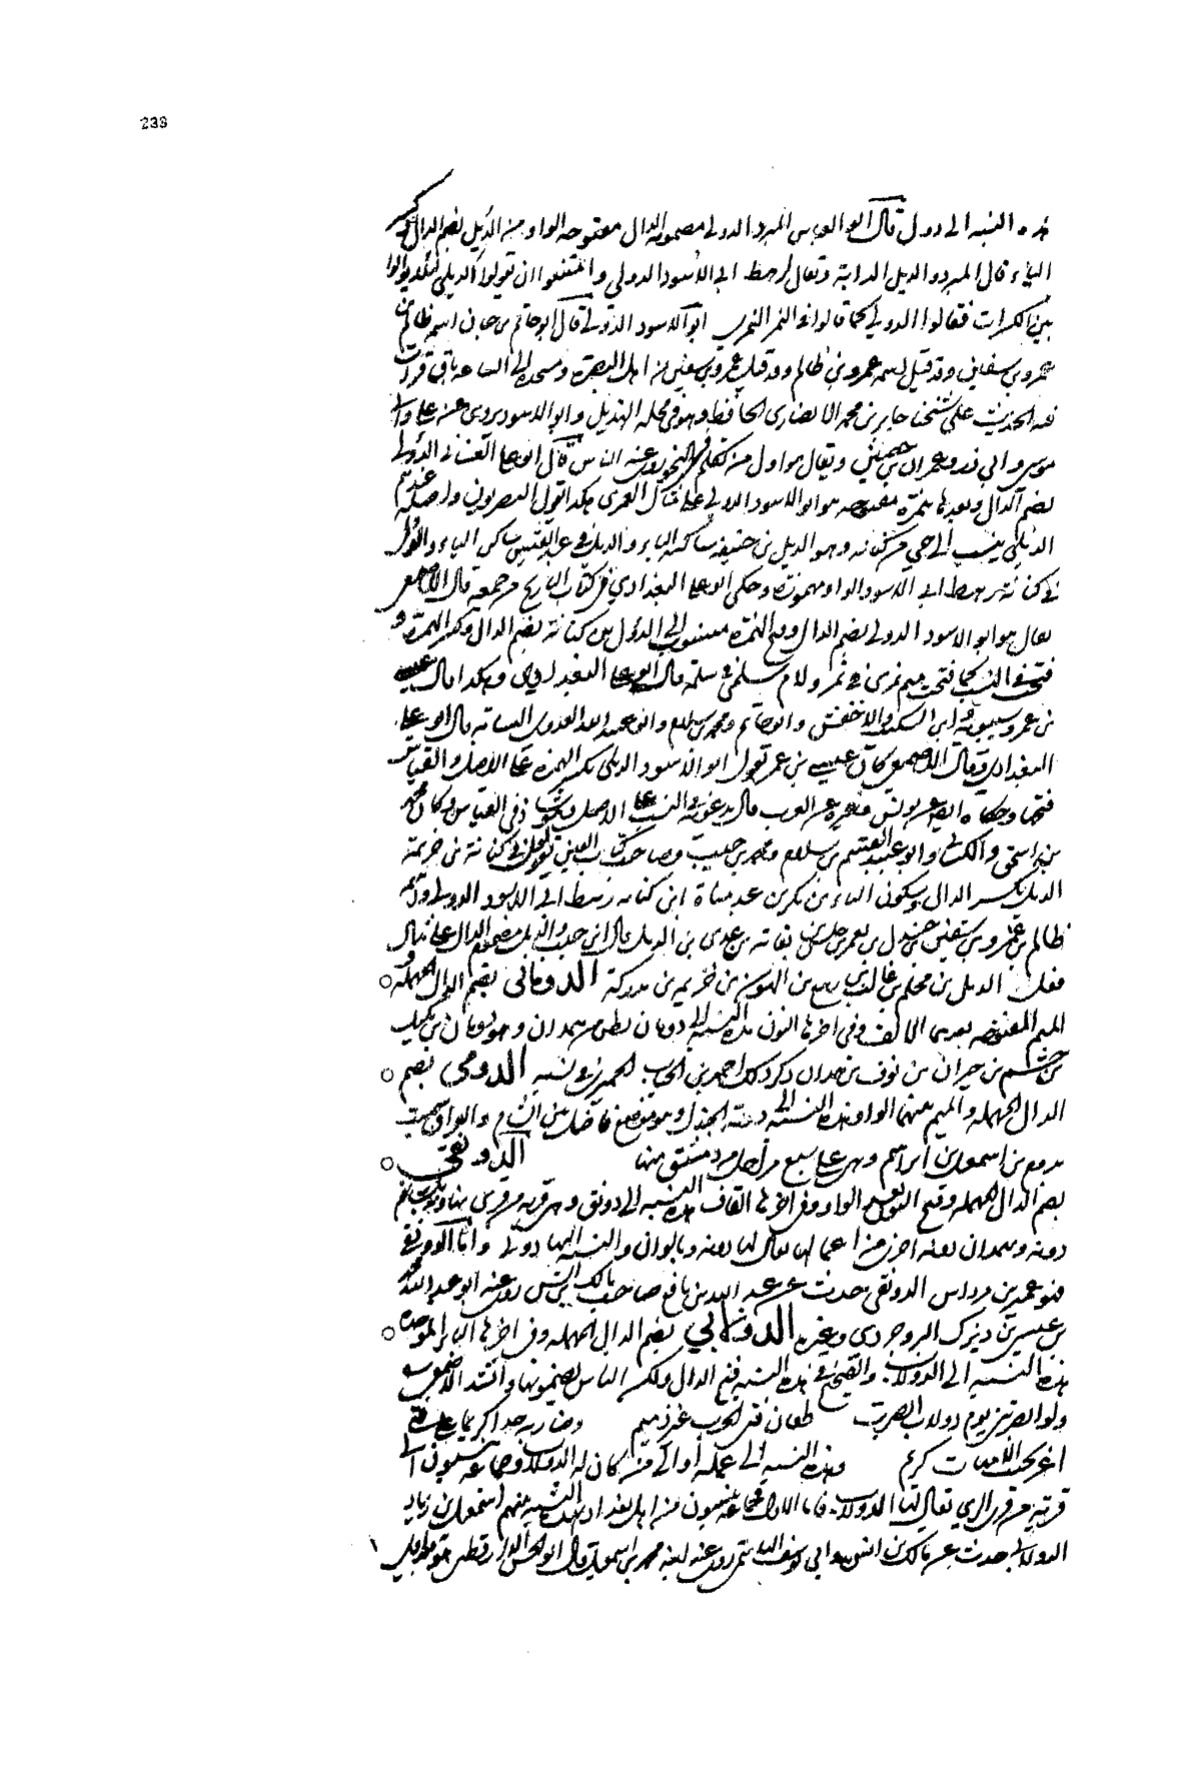 233
هذه النسبة الى دول قال ابو العباس المبرد الدولي مضمومة الدال مفتوحة الواو من الدئل بضم الدال وكسر
الياء قال المبرد والديل الدابة ويقال لرهط ابي الاسود الدولي وامتنعوا ان تقولوا الديلي ليلا يوالوا
بين الكسرات فقالوا الدولي كما قالوا في النمر النمري ابو الاسود الدولي قال ابو حاتم بن حبان اسمه ظالم بن
عمرو بن سفيان وقد قيل اسمه عمرو بن ظالم وقد قيل عمرو بن سفين من اهل البصرة ومسجده الى الساعة باق قرات
فيه الحديث على شيخنا جابر بن محمد الانصاري الحافظ وهو في محلة الهذيل وابو الاسود يروي عن علي وابي
موسى وابي ذر وعمران بن حصين ويقال هو اول من تكلم في النحو روى عنه الناس قال ابو علي الغساني الدولي
بضم الدال وبعدها همزة مفتوحة هو ابو الاسود الدولي قال العمري هكذا تقول البصريون واصله عندهم
الدئلي ينسب الى حي من كنانة وهو الديل بن حنيفة ساكنة الياء والديل في عبد القيس ساكن الياء والدؤل
في كنانة رهط ابي الاسود الواو مهموزة وحكى ابو علي البغدادي في كتاب البارع من جمعه قال الاصمعي
يقال هو ابو الاسود الدولي بضم الدال وفتح الهمزة منسوب الى الدؤل من كنانة بضم الدال وكسر الهمزة و
فتحت في النسب كما فتحت ميم نمري في نمر ولام سلمي في سلمة قال ابو علي البغدادي وهكذا قال عيسى
بن عمر وسيبويه وابن السكيت والاخفش وابو حاتم ومحمد بن سلام وابو عبد الله العدوي النسابة قال ابو علي
البغدادي وقال الاصمعي كان عيسى بن عمر تقول ابو الاسود الدئلي بكسر الهمزة على الاصل والقياس
فتحها وحكاه ايضا عن يونس وغيره عن العرب قال يدعونه في النسب على الاصل وهو شاذ في القياس وكان محمد
بن اسحق والكسائي وابو عبيد القسم بن سلام ومحمد بن حبيب وصاحب كتاب العين تقولون في كنانة بن خزيمة
الديل بكسر الدال وسكون الياء بن بكر بن عبد مناة ابن كنانة رهط ابي الاسود الدولي واسمه
ظالم بن عمرو بن سفين بن جندل بن يعمر بن حلس بن نفاثة بن عدي بن الديل قال ابن حبيب والدئل مضموم الدال على مثال
فعل الديل بن محلم بن غالب بن ييثع بن الهون بن خزيمة بن مدركة الدوماني بضم الدال المهملة و
الميم المفتوحة بعدها الالف وفي اخرها النون هذه النسبة الى دومان بطن من همدان وهو دومان بن بكيل
بن جشم بن خيران بن نوف بن همدان ذكر ذلك احمد بن الحباب الحميري في نسبه الدومي بضم
الدال المهملة والميم بينهما الواو هذه النسبة الى دومة الجندل وهو موضع فاصل بين الشام والعراق سميت
بدوم بن اسمعيل بن ابراهيم وهي على سبع مراحل من دمشق منها الدونقي
بضم الدال المهملة وفتح النون بعد الواو وفي اخرها القاف هذه النسبة الى دونق وهي قرية من قرى نهاوند
دونه وهمدان قرية اخرى من اعمالها يقال لها دونه والنسبة اليها دوني واما الدونقي
فهو عمير بن مرداس الدونقي حدث عن عبد الله بن نافع صاحب مالك بن انس روى عنه ابو عبد الله محمد
بن عيسى بن ديزك البروجردي وغيره الدولابي بضم الدال المهملة وفي اخرها الباء الموحدة
هذه النسبة الى الدولاب والصحيح في هذه النسبة فتح الدال ولكن الناس يضمونها وانشد الاصمعي
ولو ابصرتني يوم دولاب ابصرت طعان فتى في الحرب غير ذميم وضارب خدا كريما على فتى
اغر نجيب الامهات كريم وهذه النسبة الى عمله او الى من كان له الدولاب وجماعة ينسبون الى
قرية من قرى الري يقال لها الدولاب فاما الاول فجماعة ينسبون من اهل بغداد بهذه النسبة منهم اسمعيل بن زياد
الدولابي حدث عن مالك بن انس وابي يوسف القاضي روى عنه ابنه محمد بن اسمعيل قال ابو الحسن الدارقطني هو